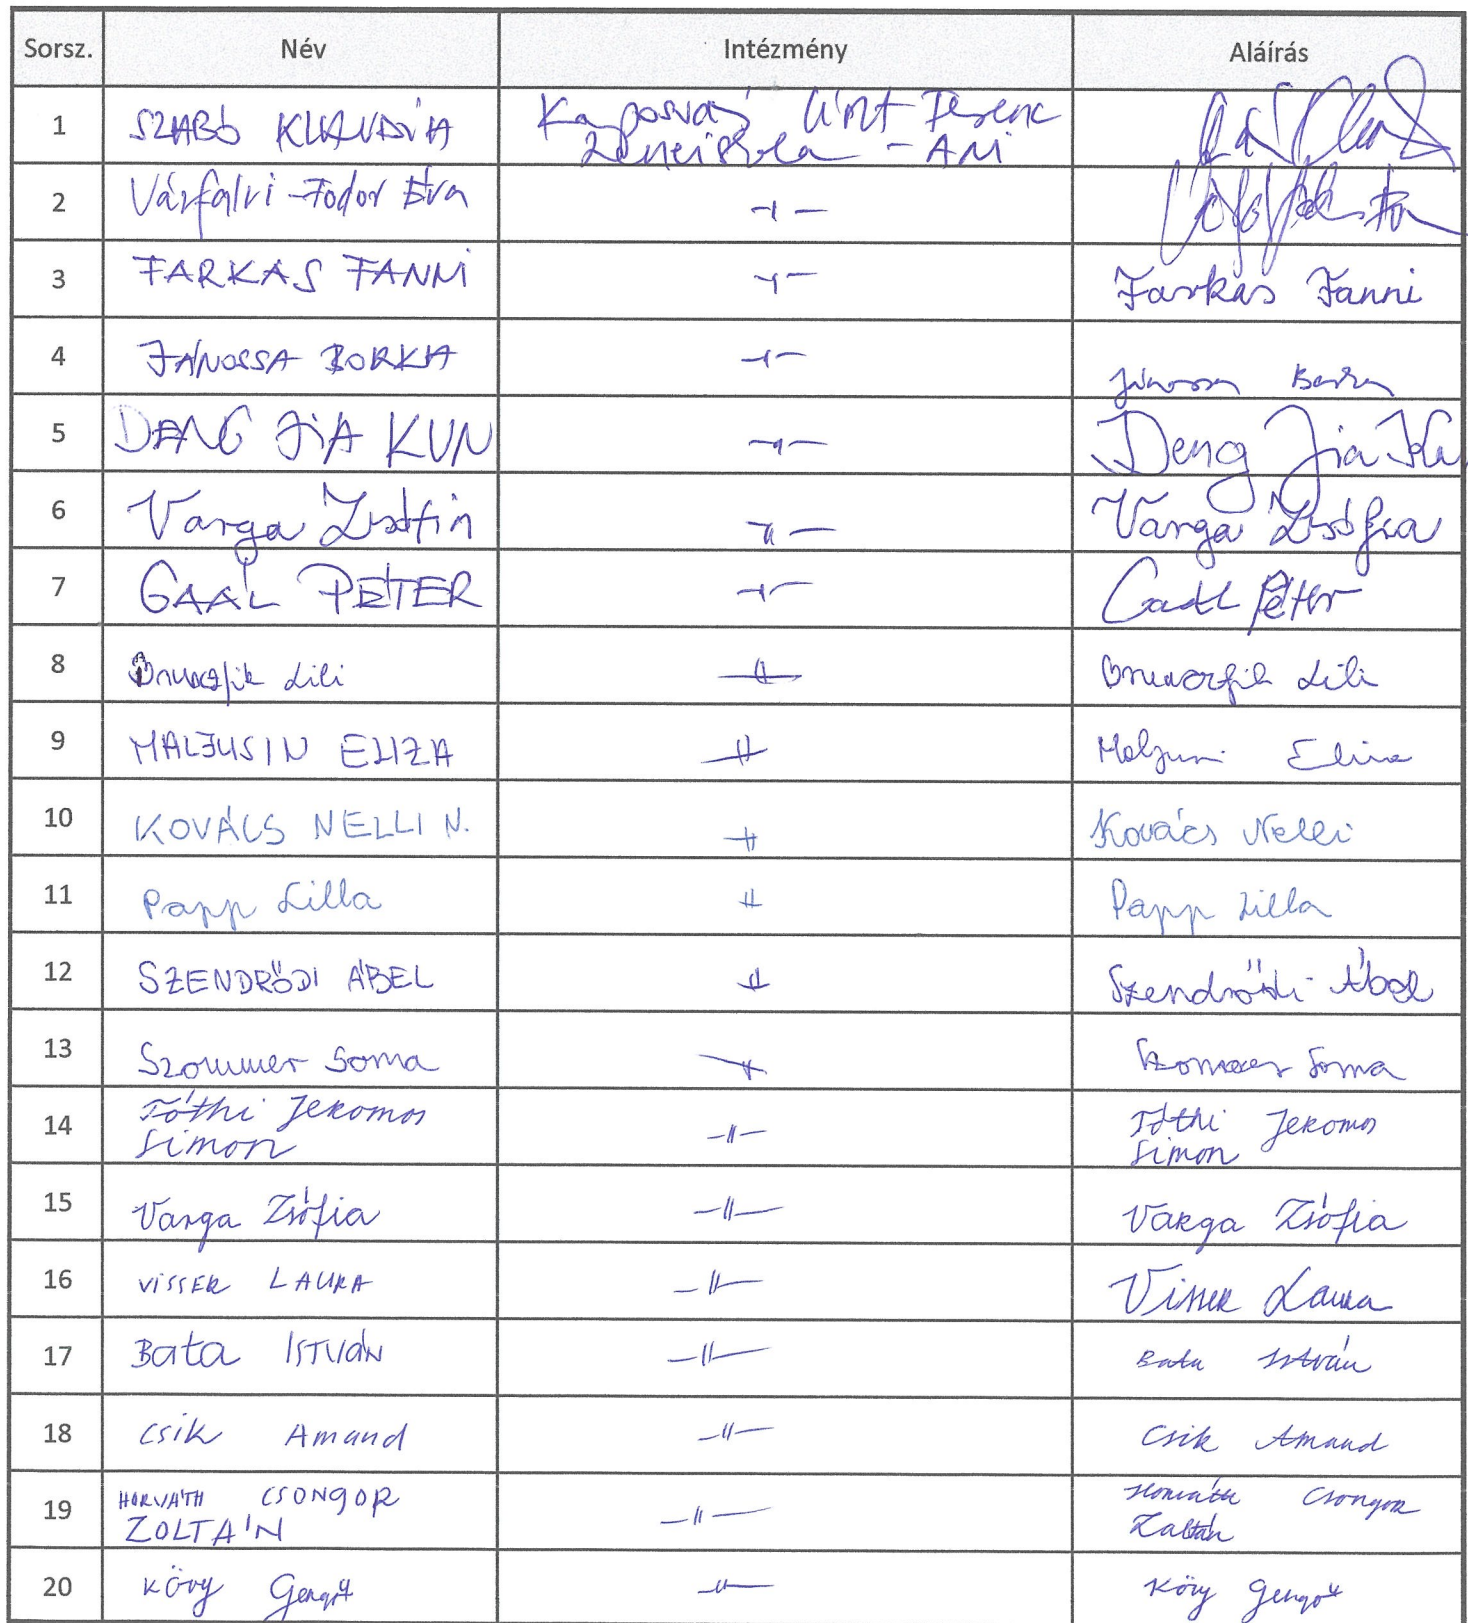 Sorsz. Név Intézmény Aláírás
1 SZABÓ KLAUDIA Kaposvári Liszt Ferenc
Zeneiskola - AMI
2 Várfalvi-Fodor Éva -〃-
3 FARKAS FANNI -〃- Farkas Fanni
4 JÁNOSSA BORKA -〃- Jánossa Borka
5 DENG JIA KUN -〃- Deng Jia Ku
6 Varga Zsófia -〃- Varga Zsófia
7 GAÁL PÉTER -〃- Gaál Péter
8 Lili -〃- Lili
9 MALJUSIN ELIZA -〃- Eliza
10 KOVÁCS NELLI N. -〃- Kovács Nelli
11 Papp Lilla -〃- Papp Lilla
12 SZENDRŐDI ÁBEL -〃- Szendrődi Ábel
13 Szommer Soma -〃- Szommer Soma
14 Tóthi Jeromos -〃- Tóthi Jeromos
Simon Simon
15 Varga Zsófia -〃- Varga Zsófia
16 VISSER LAURA -〃- Visser Laura
17 Bata ISTVÁN -〃- Bata István
18 Csik Amand -〃- Csik Amand
19 HORVÁTH CSONGOR -〃- Horváth Csongor
ZOLTÁN Zoltán
20 Köry Gergő -〃- Köry Gergő